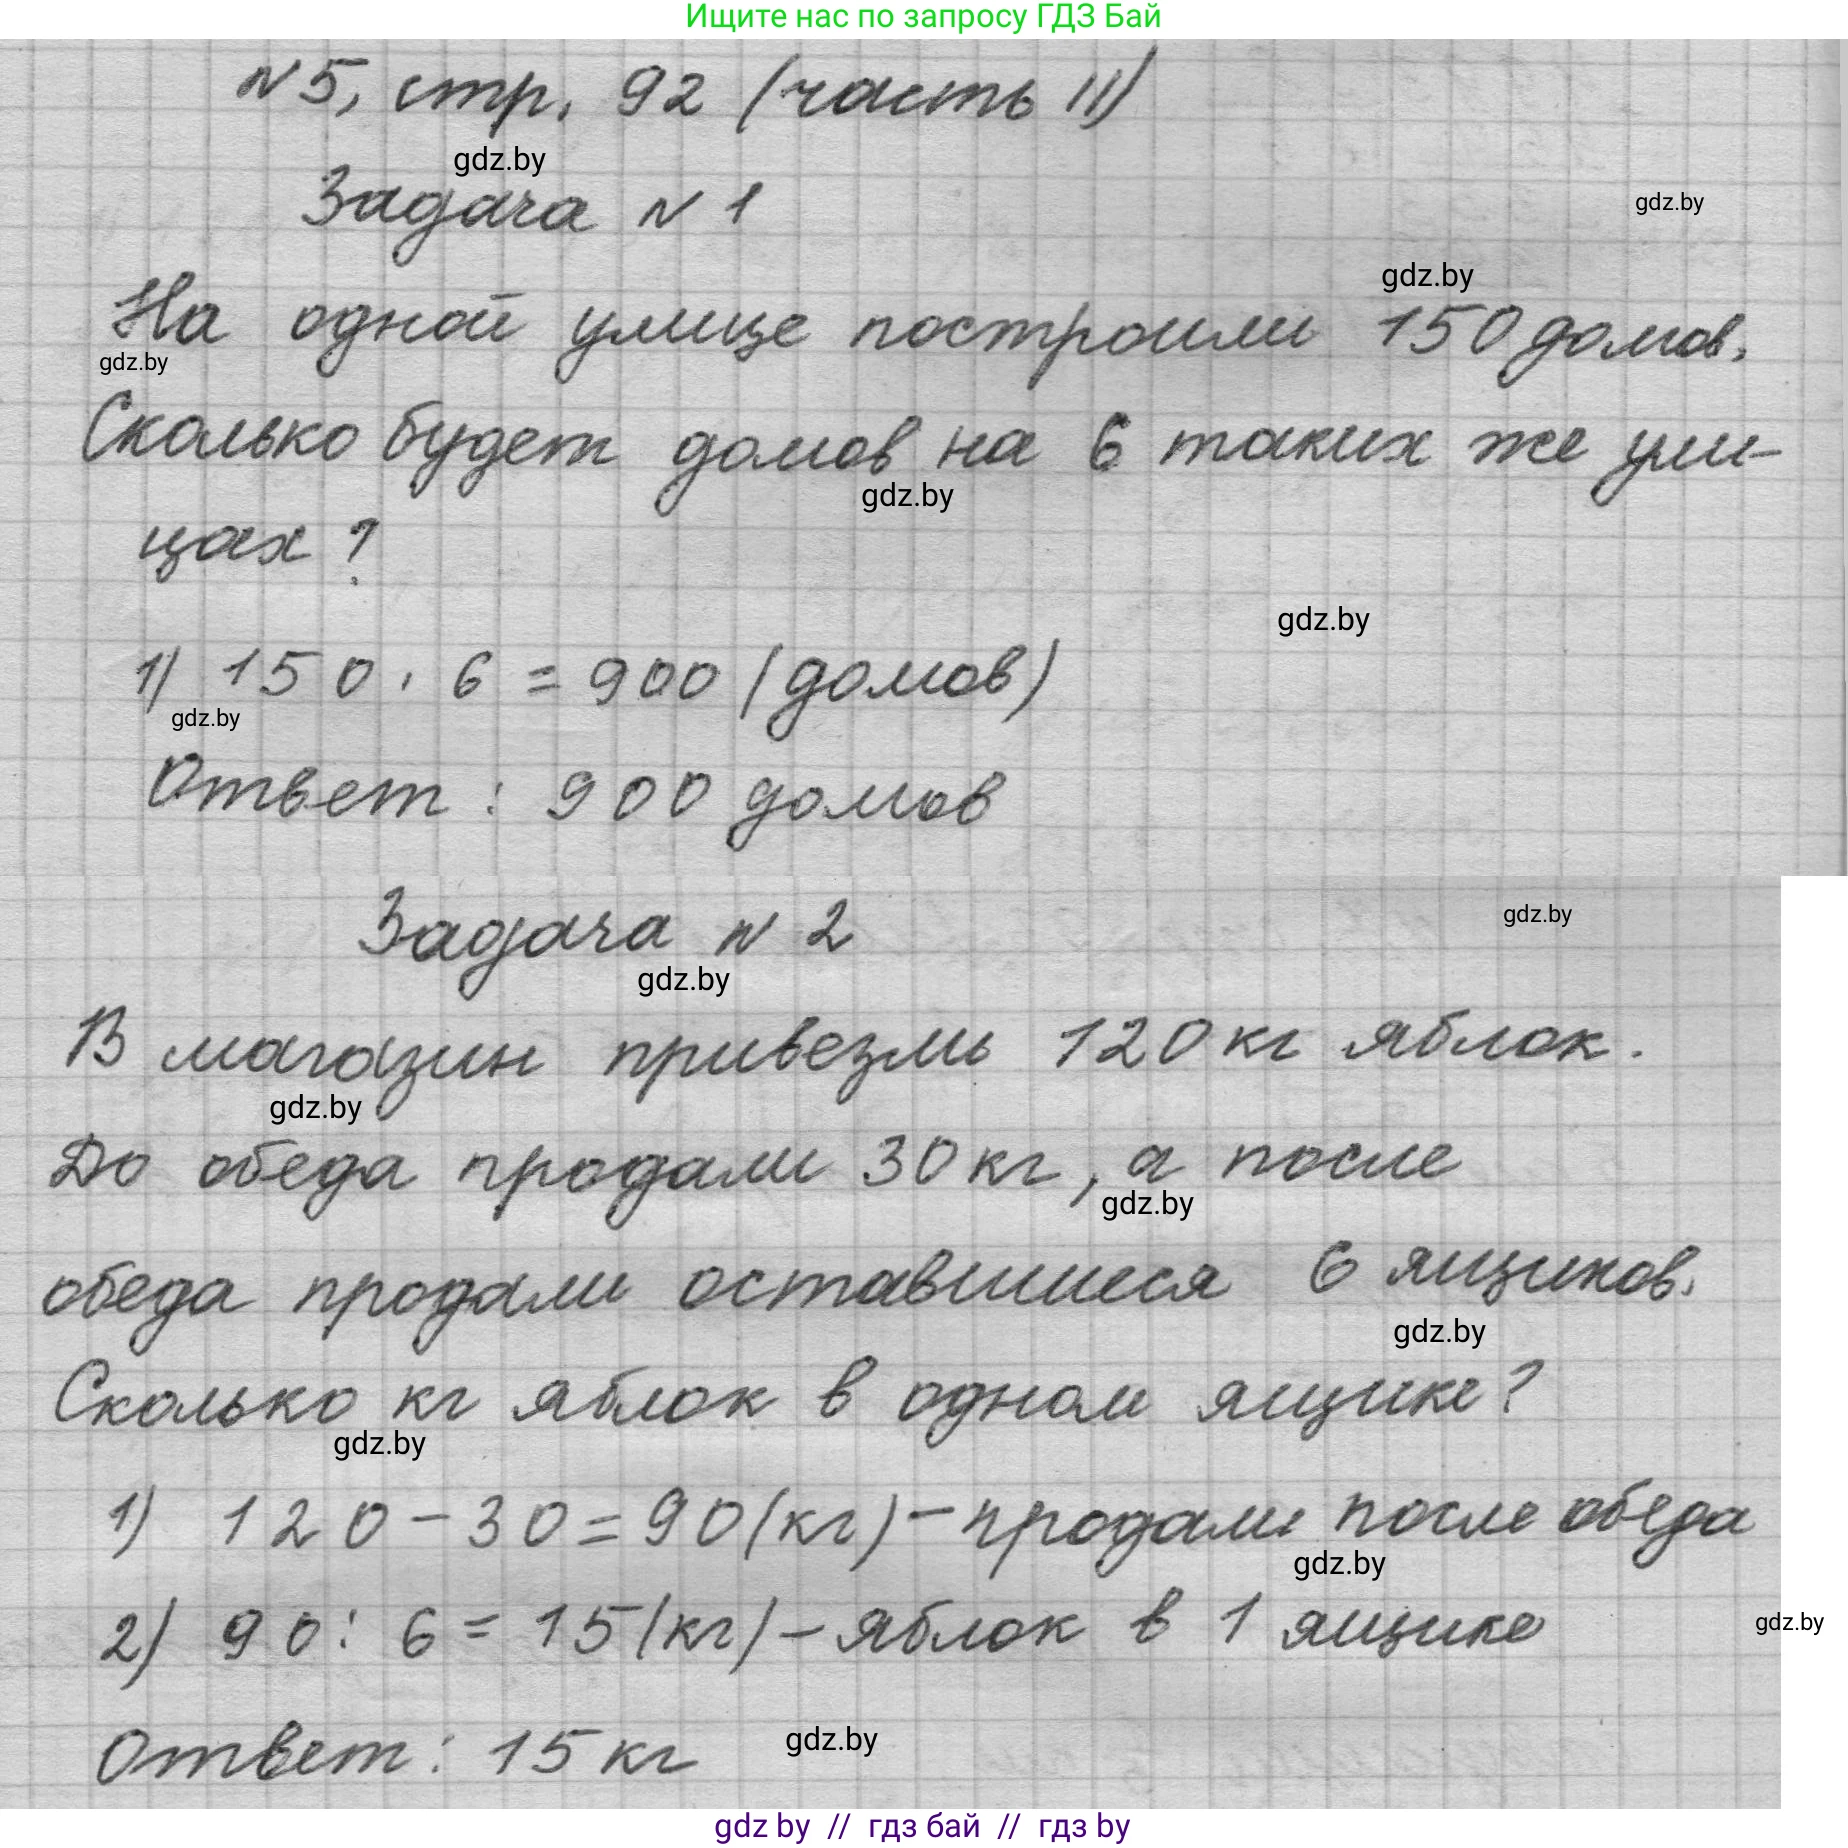 Ищите нас по запросу ГДЗ Бай
N5, стр. 92 (часть II)
gdz.by
Задача N 1
gdz.by
gdz.by
На одной улице построили 150 домов.
gdz.by
Сколько будет домов на 6 таких же ули-
gdz.by
цах?
gdz.by
1) 150 · 6 = 900 (домов)
gdz.by
Ответ: 900 домов
gdz.by
Задача N 2
gdz.by
В магазин привезли 120 кг яблок.
gdz.by
До обеда продали 30 кг, а после
gdz.by
обеда продали оставшиеся 6 ящиков.
gdz.by
Сколько кг яблок в одном ящике?
gdz.by
1) 120 - 30 = 90 (кг) - продали после обеда
gdz.by
2) 90 : 6 = 15 (кг) - яблок в 1 ящике
gdz.by
Ответ: 15 кг
gdz.by
gdz by // гдз бай // гдз by